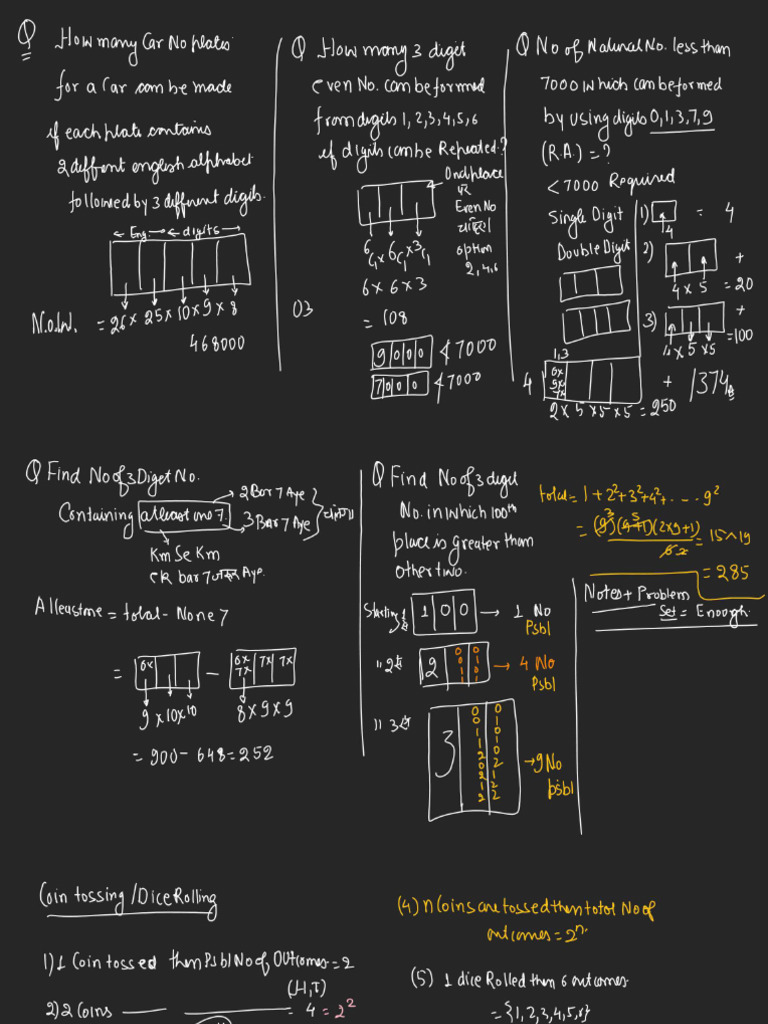 Q How many Car No plates
for a Car can be made
if each plate contains
2 diffent english alphabet
followed by 3 different digits.
← Eng. → ← digits →
N.o.W. = 26 × 25 × 10 × 9 × 8
468000
Q How many 3 digit
even No. can be formed
from digits 1, 2, 3, 4, 5, 6
if digits can be Repeated?
Ond place
पर
Even No
चाहिए
option
2, 4, 6
6C1 × 6C1 × 3C1
6 × 6 × 3
03
= 108
9 0 0 0 ≮ 7000
7 0 0 0 ≮ 7000
Q No of Natural No. less than
7000 which can be formed
by using digits 0, 1, 3, 7, 9
(R.A.) = ?
< 7000 Required
Single Digit 1) = 4
4
Double Digit 2) +
4 × 5 = 20
3) +
4 × 5 × 5 = 100
1, 3
4 0× 9× 7× + 1374
2 × 5 × 5 × 5 = 250
Q Find No of 3 Diget No.
Containing atleast one 7.
→ 2 Bar 7 Aye
3 Bar 7 Aye
Km Se Km
ek bar 7 जरूर Aye.
Atleastone = total - None 7
= 0× - 0× 7× 7× 7×
9 × 10 × 10 8 × 9 × 9
= 900 - 648 = 252
Q Find No of 3 digit
No. in which 100th
place is greater than
other two.
Starting 1 से 1 0 0 → 1 No
Psbl
" 2 से 2 0 0 0 1 1 0 1 1 → 4 No
Psbl
" 3 से 3 0 0 0 1 1 0 1 1 2 0 0 2 2 1 1 2 2 2 → 9 No
psbl
total = 1 + 2² + 3² + 4² + . ... 9²
= (9)(9+1)(2×9+1) = 15 × 19
3 5
6 2
= 285
Notes + Problem
Set = Enough.
Coin tossing / Dice Rolling
1) 1 Coin tossed then Psbl No of Outcomes = 2
(H, T)
2) 2 Coins = 4 = 2²
(4) n Coins are tossed then total No of
outcomes = 2ⁿ
(5) 1 dice Rolled then 6 outcomes
= {1, 2, 3, 4, 5, 6}